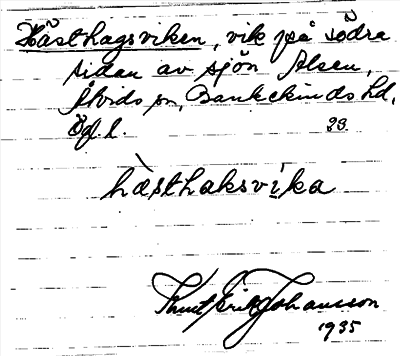 Hästhagsviken, vik på södra
sidan av sjön Ålsen,
Åtvids sn, Bankekinds hd,
Ög. l. 23.
hàsthaksvika
Knut Erik Johansson
1935